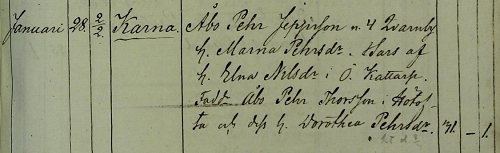 Januari 28. 2/2. Karna. Åbo Pehr Jeppsson n. 4 Qvarnby
h. Marna Pehrsdr. Bars af
h. Elna Nilsdr i Ö. Kattarp.
Fadd. Åbo Pehr Thorsson i Hötof-
ta och dess h. Dorothea Pehrsdr. 31. – 1.